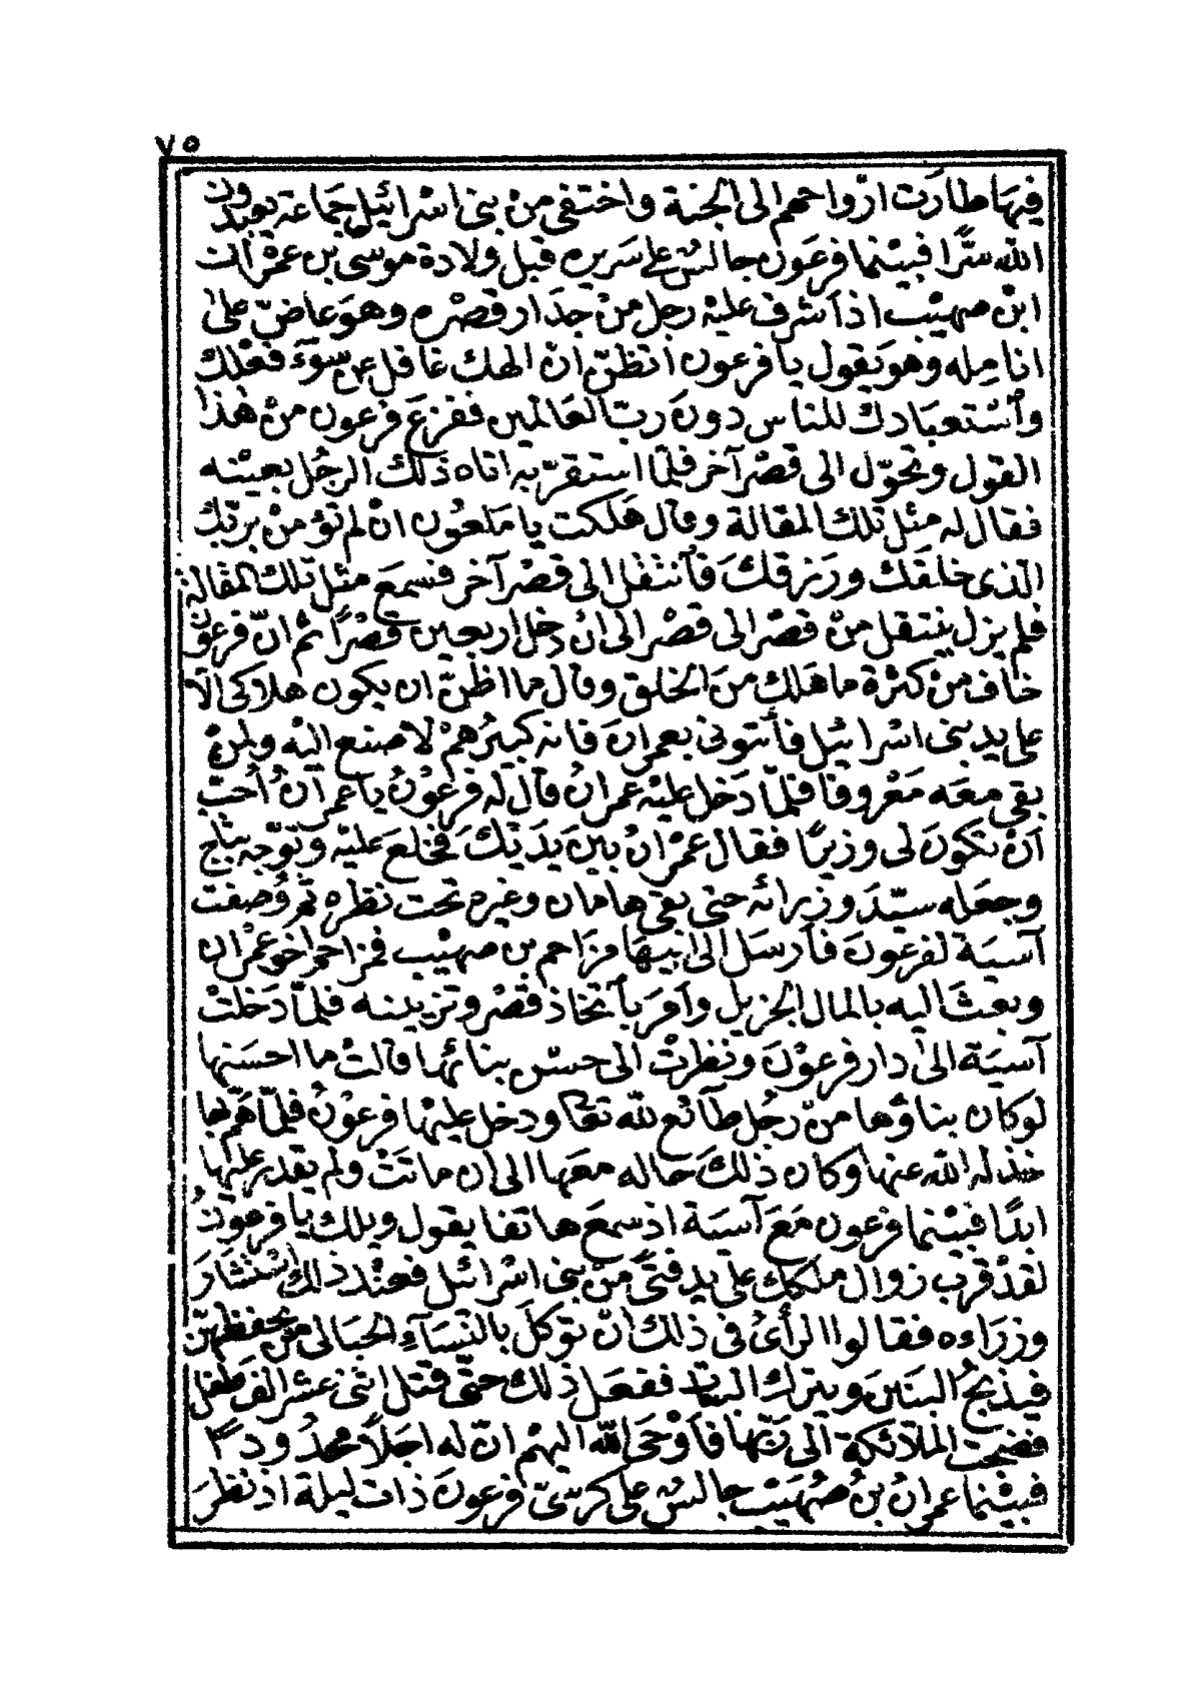 ٧٥
فيها طارت ارواحهم الى الجنة واختفى من بنى اسرائيل جماعة يعبدون
الله سرًّا فبينما فرعون جالس على سريره قبل ولادة موسى بن عمران
ابن صهيب اذ اشرف عليه رجل من جدار قصره وهو عاض على
انامله وهو يقول يا فرعون أتظن ان الهك غافل عن سوء فعلك
واستعبادك للناس دون رب العالمين ففزع فرعون من هذا
القول وتحوّل الى قصر آخر فلما استقر به اتاه ذلك الرجل بعينه
فقال له مثل تلك المقالة وقال هلكت يا ملعون ان لم تؤمن بربك
الذى خلقك ورزقك فانتقل الى قصر آخر فسمع مثل تلك المقالة
فلم يزل ينتقل من قصر الى قصر الى ان دخل اربعين قصرًا ثم ان فرعون
خاف من كثرة ما هلك من الخلق وقال ما اظن ان يكون هلاكى الّا
على يد بنى اسرائيل فأتونى بعمران فانه كبيرهم لاصنع اليه ولمن
بقى معه معروفا فلما دخل عليه عمران قال له فرعون يا عمران أحب
ان تكون لى وزيرًا فقال عمران بين يديك فخلع عليه وتوّجه بتاج
وجعله سيّد وزرائه حتى بقى هامان وغيره تحت نظره ثم وُصفت
آسية لفرعون فأرسل الى ابيها مزاحم بن صهيب فمزاحم اخو عمران
وبعث اليه بالمال الجزيل وأمر بأتخاذ قصر وتزيينه فلمّا دخلت
آسية الى دار فرعون ونظرت الى حسن بنائها قالت ما احسنها
لو كان بناؤها من رجل طآئع لله تعا ودخل عليها فرعون فلمّا هم بها
خذله الله عنها وكان ذلك حاله معها الى ان ماتت ولم يقدر عليها
ابدًا فبينما فرعون مع آسية اذ سمع هاتفا يقول ويلك يا فرعون
لقد قرب زوال ملكك على يد فتًى من بنى اسرائيل فعند ذلك استشار
وزراءه فقالوا الرأى فى ذلك ان توكل بالنسآء الحبالى من يحفظهنّ
فيذبح البنين ويترك البنات ففعل ذلك حتّى قتل اثنى عشر الف طفل
فضجت الملائكة الى ربّها فأوحى الله اليهم ان له اجلاً محدودًا
فبينما عمران بن صهيب جالس على كرسىّ فرعون ذات ليلة اذ نظر